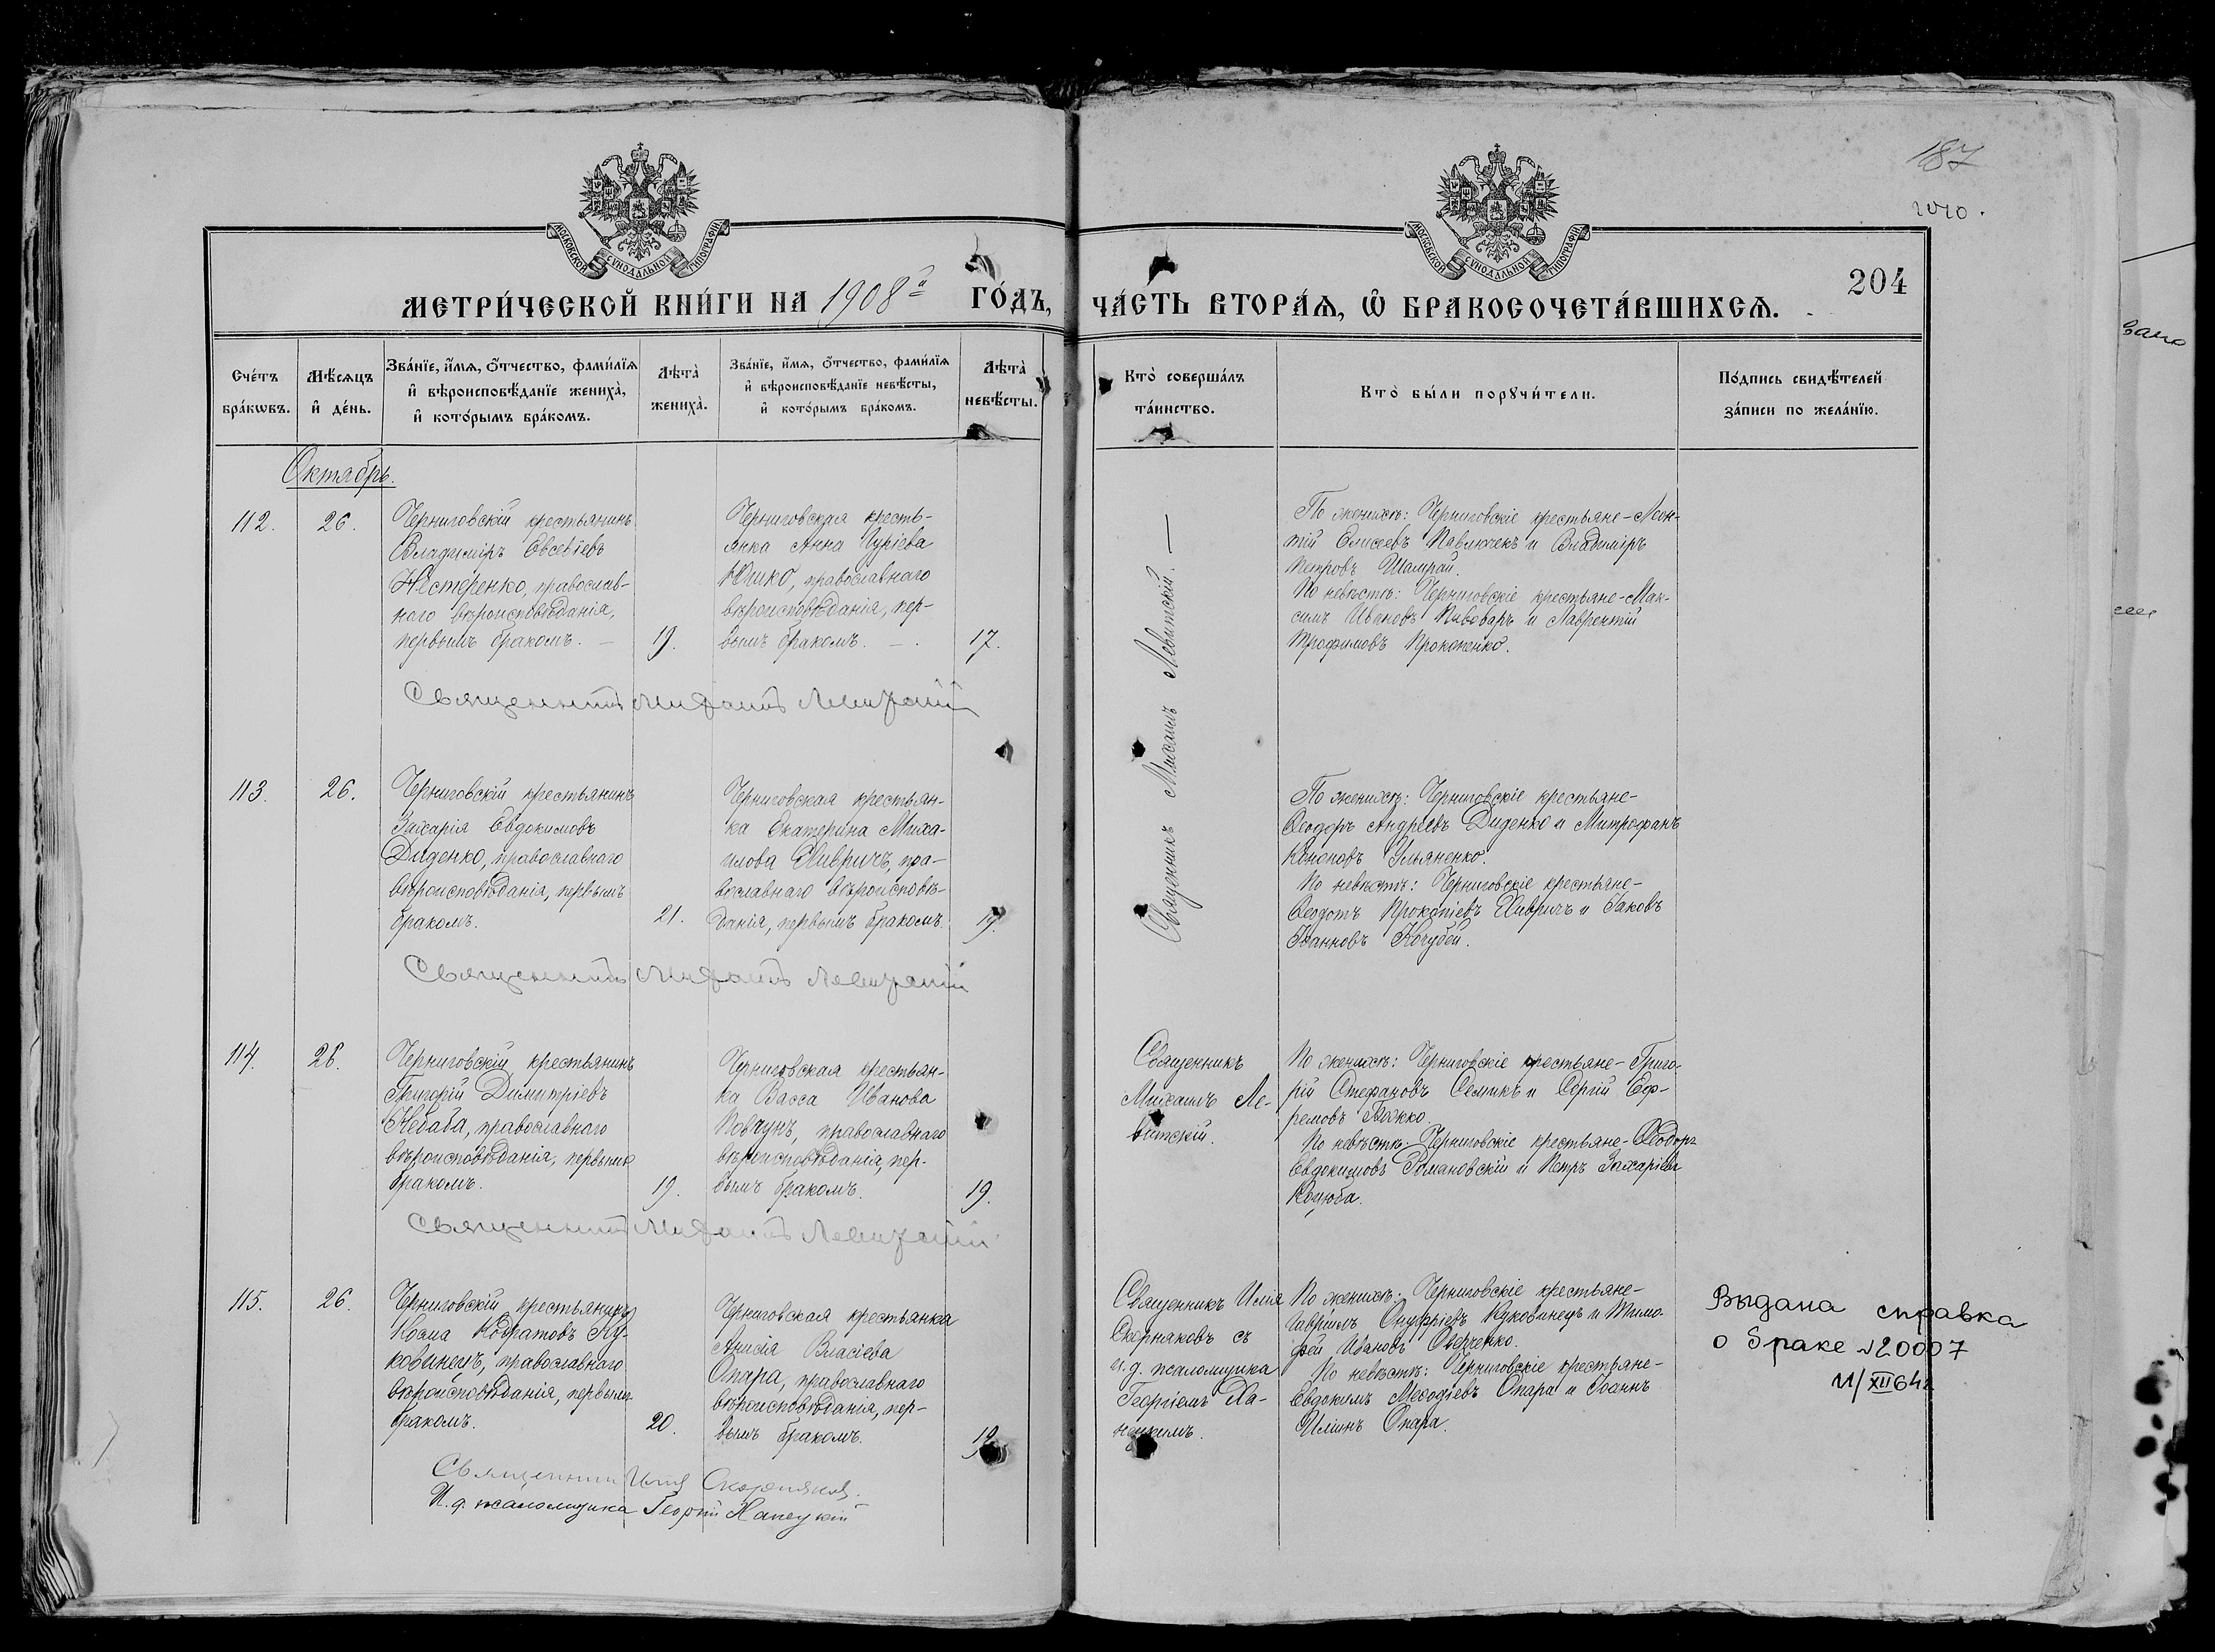 187
204
МОСКОВСКОЙ СѴНОДАЛЬНОЙ ТИПОГРАФІИ
МОСКОВСКОЙ СѴНОДАЛЬНОЙ ТИПОГРАФІИ
МЕТРИ́ЧЕСКОЙ КНИ́ГИ НА 1908й ГО́ДЪ,
ЧА́СТЬ ВТОРА́Ѧ, Ѡ҆ БРАКОСОЧЕТА́ВШИХСѦ.
Сче́тъ бра́кѡвъ.
Мѣ́сѧцъ и҆ де́нь.
Зва́нїе, и҆́мѧ, ѻ҆́тчество, фами́лїѧ
и҆ вѣроисповѣ́данїе жениха̀,
и҆ кото́рымъ бра́комъ.
Лѣта̀ жениха̀.
Зва́нїе, и҆́мѧ, ѻ҆́тчество, фами́лїѧ
и҆ вѣроисповѣ́данїе невѣ́сты,
и҆ кото́рымъ бра́комъ.
Лѣта̀ невѣ́сты.
Кто̀ соверша́лъ
та́инство.
Кто̀ бы́ли порꙋчи́тели.
По́дпись свидѣ́телей
за́писи по жела́нїю.
Октябрь.
112.
26.
Черниговскій крестьянинъ
Владиміръ Евсевіевъ
Нестеренко, православ-
наго вѣроисповѣданія,
первымъ бракомъ. —
19.
Черниговская кресть-
янка Анна Гуріева
Юшко, православнаго
вѣроисповѣданія, пер-
вымъ бракомъ. —
17.
Священникъ Михаилъ Левитскій. —
По женихѣ: Черниговскіе крестьяне - Леон-
тій Елисеевъ Павлючекъ и Владиміръ
Петровъ Шамрай.
По невѣстѣ: Черниговскіе крестьяне - Мак-
симъ Ивановъ Пивоваръ и Лаврентій
Трофимовъ Прокопенко.
Священникъ Михаилъ Левитскій
113.
26.
Черниговскій крестьянинъ
Захарія Евдокимовъ
Диденко, православнаго
вѣроисповѣданія, первымъ
бракомъ.
21.
Черниговская крестьян-
ка Екатерина Миха-
илова Хивричъ, пра-
вославнаго вѣроисповѣ-
данія, первымъ бракомъ.
19.
По женихѣ: Черниговскіе крестьяне -
Ѳеодоръ Андреевъ Диденко и Митрофанъ
Кононовъ Ульяненко.
По невѣстѣ: Черниговскіе крестьяне -
Ѳеодотъ Прокопіевъ Хивричъ и Іаковъ
Іоанновъ Кочубей.
Священникъ Михаилъ Левитскій
114.
26.
Черниговскій крестьянинъ
Григорій Димитріевъ
Небаба, православнаго
вѣроисповѣданія, первымъ
бракомъ.
19.
Черниговская крестьян-
ка Васса Иванова
Повчунъ, православнаго
вѣроисповѣданія, пер-
вымъ бракомъ.
19.
Священникъ
Михаилъ Ле-
витскій.
По женихѣ: Черниговскіе крестьяне - Григо-
рій Стефановъ Семикъ и Сергій Еф-
ремовъ Божко.
По невѣстѣ: Черниговскіе крестьяне - Ѳеодоръ
Евдокимовъ Романовскій и Петръ Захаріевъ
Коцюба.
Священникъ Михаилъ Левитскій
115.
26.
Черниговскій крестьянинъ
Косма Кодратовъ Ку-
ковинецъ, православнаго
вѣроисповѣданія, первымъ
бракомъ.
20.
Черниговская крестьянка
Анисія Власіева
Опара, православнаго
вѣроисповѣданія, пер-
вымъ бракомъ.
19.
Священникъ Илія
Скорняковъ съ
и. д. псаломщика
Георгіемъ
По женихѣ: Черниговскіе крестьяне -
Гавріилъ Онуфріевъ Куковинецъ и Тимо-
фей Ивановъ Овдіенко.
По невѣстѣ: Черниговскіе крестьяне -
Евдокимъ Меѳодіевъ Опара и Іоаннъ
Иліинъ Опара.
Выдана справка
о браке №20007
11/XII 64г
Священникъ Илія Скорняковъ.
И. д. псаломщика Георгій